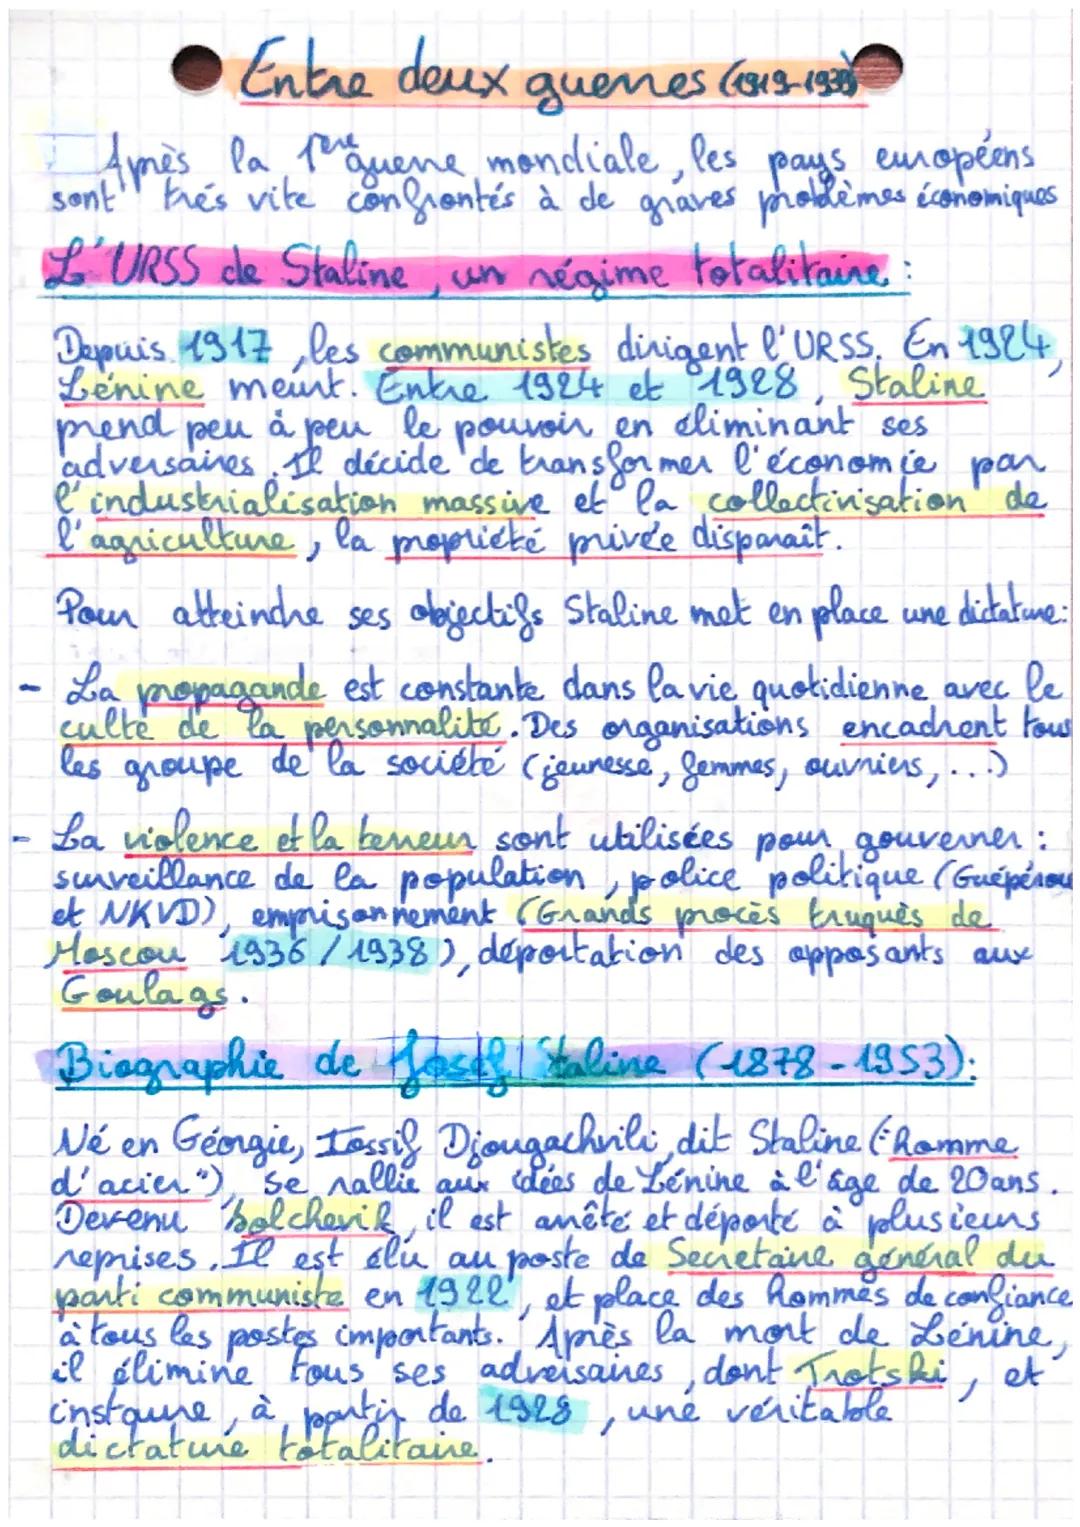 Entre deux guerres (1919-1939)
Après la 1ère guerre mondiale, les pays européens
sont trés vite confrontés à de graves problèmes économiques
L'URSS de Staline, un régime totalitaire :
Depuis 1917, les communistes dirigent l'URSS. En 1924,
Lénine meurt. Entre 1924 et 1928, Staline
prend peu à peu le pouvoir en éliminant ses
adversaires. Il décide de transformer l'économie par
l'industrialisation massive et la collectivisation de
l'agriculture, la propriété privée disparaît.
Pour atteindre ses objectifs Staline met en place une dictature:
- La propagande est constante dans la vie quotidienne avec le
culte de la personnalité. Des organisations encadrent tous
les groupe de la société (jeunesse, femmes, ouvriers, ...)
- La violence et la terreur sont utilisées pour gouverner :
surveillance de la population, police politique (Guépéou
et NKVD), emprisonnement (Grands procès truqués de
Moscou 1936/1938), déportation des opposants aux
Goulags.
Biographie de Josef Staline (1878-1953):
Né en Géorgie, Iossif Djougachvili, dit Staline ("homme
d'acier"), se rallie aux idées de Lénine à l'âge de 20 ans.
Devenu bolchevik, il est arrêté et déporté à plusieurs
reprises. Il est élu au poste de Secretaire général du
parti communiste en 1922, et place des hommes de confiance
à tous les postes importants. Après la mort de Lénine,
il élimine tous ses adversaires, dont Trotski, et
instaure, à partir de 1928, une véritable
dictature totalitaire.